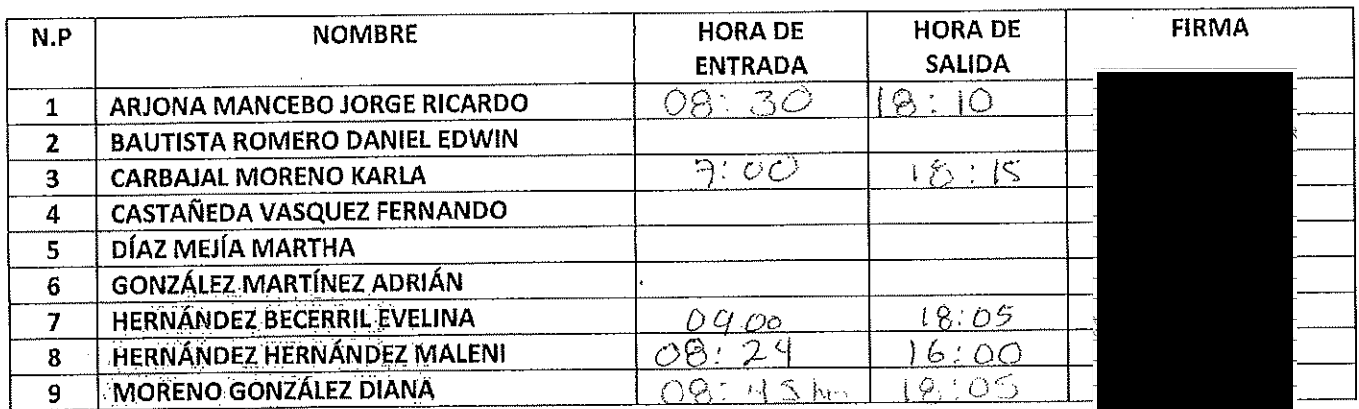 N.P NOMBRE HORA DE ENTRADA HORA DE SALIDA FIRMA
1 ARJONA MANCEBO JORGE RICARDO 08:30 18:10
2 BAUTISTA ROMERO DANIEL EDWIN
3 CARBAJAL MORENO KARLA 7:00 18:15
4 CASTAÑEDA VASQUEZ FERNANDO
5 DÍAZ MEJÍA MARTHA
6 GONZÁLEZ MARTÍNEZ ADRIÁN
7 HERNÁNDEZ BECERRIL EVELINA 09:00 18:05
8 HERNÁNDEZ HERNÁNDEZ MALENI 08:24 16:00
9 MORENO GONZÁLEZ DIANA 08:45 hrs 18:05